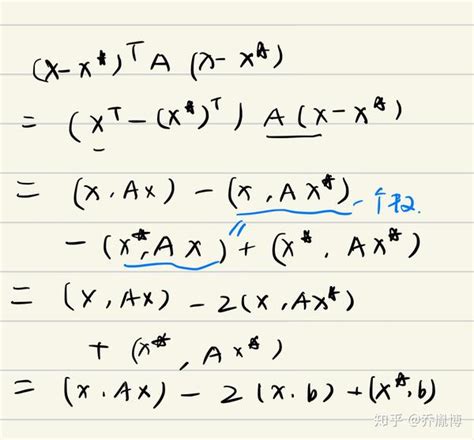 (x-x*)ᵀA(x-x*)
= (xᵀ-(x*)ᵀ)A(x-x*)
= (x,Ax)-(x,Ax*)
-(x*,Ax)+(x*,Ax*)
= (x,Ax)-2(x,Ax*)
+(x*,Ax*)
= (x.Ax)-2(x.b)+(x*,b)
知乎 @乔胤博